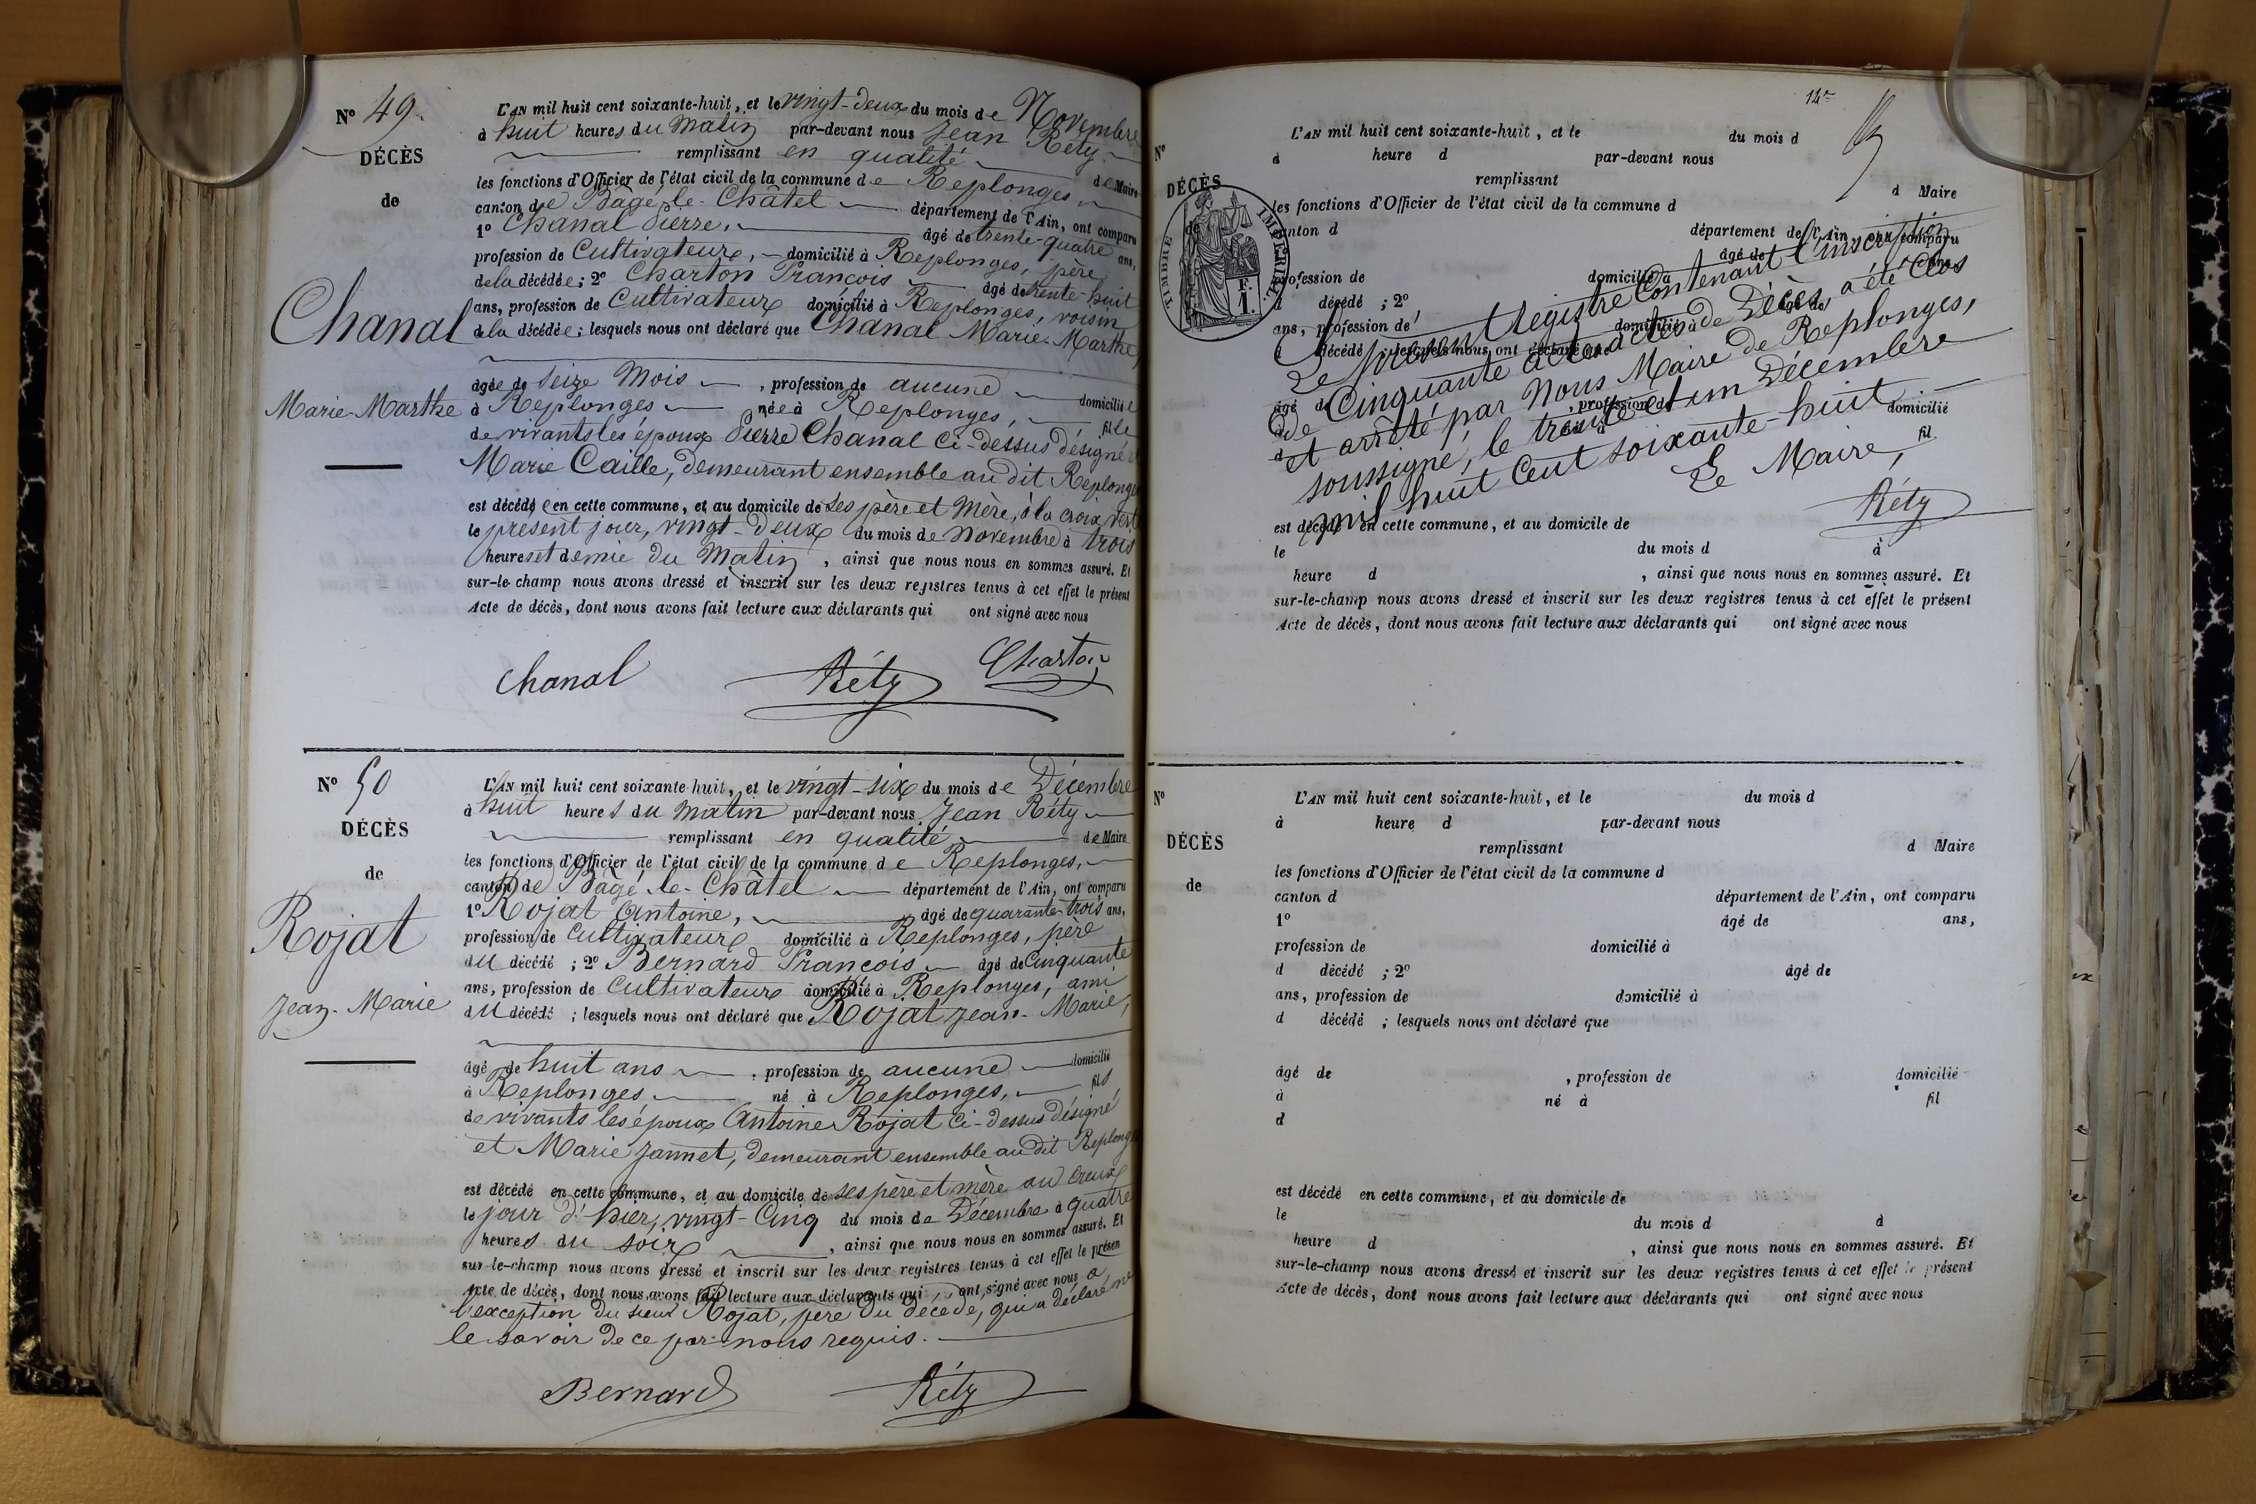 N° 49.
DÉCÈS
de
Chanal
Marie-Marthe
L'AN mil huit cent soixante-huit, et le vingt-deux du mois de Novembre
à huit heures du matin par-devant nous Jean Réty
remplissant en qualité de Maire
les fonctions d'Officier de l'état civil de la commune de Replonges
canton de Bâgé-le-Châtel département de l'Ain, ont comparu
1° Chanal Pierre, âgé de trente-quatre ans,
profession de Cultivateur, domicilié à Replonges, père
de la décédée ; 2° Charton François âgé de trente-huit
ans, profession de Cultivateur domicilié à Replonges, voisin
de la décédée ; lesquels nous ont déclaré que Chanal Marie-Marthe,
âgée de seize mois , profession de aucune domiciliée
à Replonges née à Replonges, fille
de vivants les époux Pierre Chanal ci-dessus désigné et
Marie Caille, demeurant ensemble au dit Replonges
est décédée en cette commune, et au domicile de ses père et mère, à la croix verte
le présent jour, vingt-deux du mois de novembre à trois
heures et demie du matin , ainsi que nous nous en sommes assuré. Et
sur-le-champ nous avons dressé et inscrit sur les deux registres tenus à cet effet le présent
Acte de décès, dont nous avons fait lecture aux déclarants qui ont signé avec nous
Chanal Réty Charton
N° 50
DÉCÈS
de
Rojat
Jean-Marie
L'AN mil huit cent soixante-huit, et le vingt-six du mois de Décembre
à huit heures du matin par-devant nous Jean Réty
remplissant en qualité de Maire
les fonctions d'Officier de l'état civil de la commune de Replonges,
canton de Bâgé-le-Châtel département de l'Ain, ont comparu
1° Rojat Antoine, âgé de quarante-trois ans,
profession de Cultivateur domicilié à Replonges, père
du décédé ; 2° Bernard François âgé de Cinquante
ans, profession de Cultivateur domicilié à Replonges, ami
du décédé ; lesquels nous ont déclaré que Rojat Jean-Marie,
âgé de huit ans , profession de aucune domicilié
à Replonges né à Replonges, fils
de vivants les époux Antoine Rojat ci-dessus désigné
et Marie Jannet, demeurant ensemble au dit Replonges
est décédé en cette commune, et au domicile de ses père et mère au Creux
le jour d'hier, vingt-Cinq du mois de Décembre à quatre
heures du soir , ainsi que nous nous en sommes assuré. Et
sur-le-champ nous avons dressé et inscrit sur les deux registres tenus à cet effet le présen
Acte de décès, dont nous avons fait lecture aux déclarants qui ont signé avec nous à
l'exception du sieur Rojat, père du décédé, qui a déclaré ne
le savoir de ce par nous requis.
Bernard Réty
14e
N°
DÉCÈS
de
TIMBRE IMPÉRIAL
F.
1.
L'AN mil huit cent soixante-huit, et le du mois d
à heure d par-devant nous
remplissant d Maire
les fonctions d'Officier de l'état civil de la commune d
canton d département de l'Ain, ont comparu
âgé de ans,
profession de domicilié à
d décédé ; 2° âgé de
ans, profession de domicilié à
d décédé ; lesquels nous ont déclaré que
Le présent Registre Contenant l'inscription
de Cinquante actes de Décès a été Clos
et arrêté par Nous Maire de Replonges,
soussigné, le trente et un Décembre
mil huit Cent soixante-huit
Le Maire,
Réty
âgé d , profession de domicilié
fil
est décédé en cette commune, et au domicile de
le du mois d à
heure d , ainsi que nous nous en sommes assuré. Et
sur-le-champ nous avons dressé et inscrit sur les deux registres tenus à cet effet le présent
Acte de décès, dont nous avons fait lecture aux déclarants qui ont signé avec nous
N°
DÉCÈS
de
L'AN mil huit cent soixante-huit, et le du mois d
à heure d par-devant nous
remplissant d Maire
les fonctions d'Officier de l'état civil de la commune d
canton d département de l'Ain, ont comparu
1° âgé de ans,
profession de domicilié à
d décédé ; 2° âgé de
ans, profession de domicilié à
d décédé ; lesquels nous ont déclaré que
âgé de , profession de domicilié
à né à fil
d
est décédé en cette commune, et au domicile de
le du mois d à
heure d , ainsi que nous nous en sommes assuré. Et
sur-le-champ nous avons dressé et inscrit sur les deux registres tenus à cet effet le présent
Acte de décès, dont nous avons fait lecture aux déclarants qui ont signé avec nous